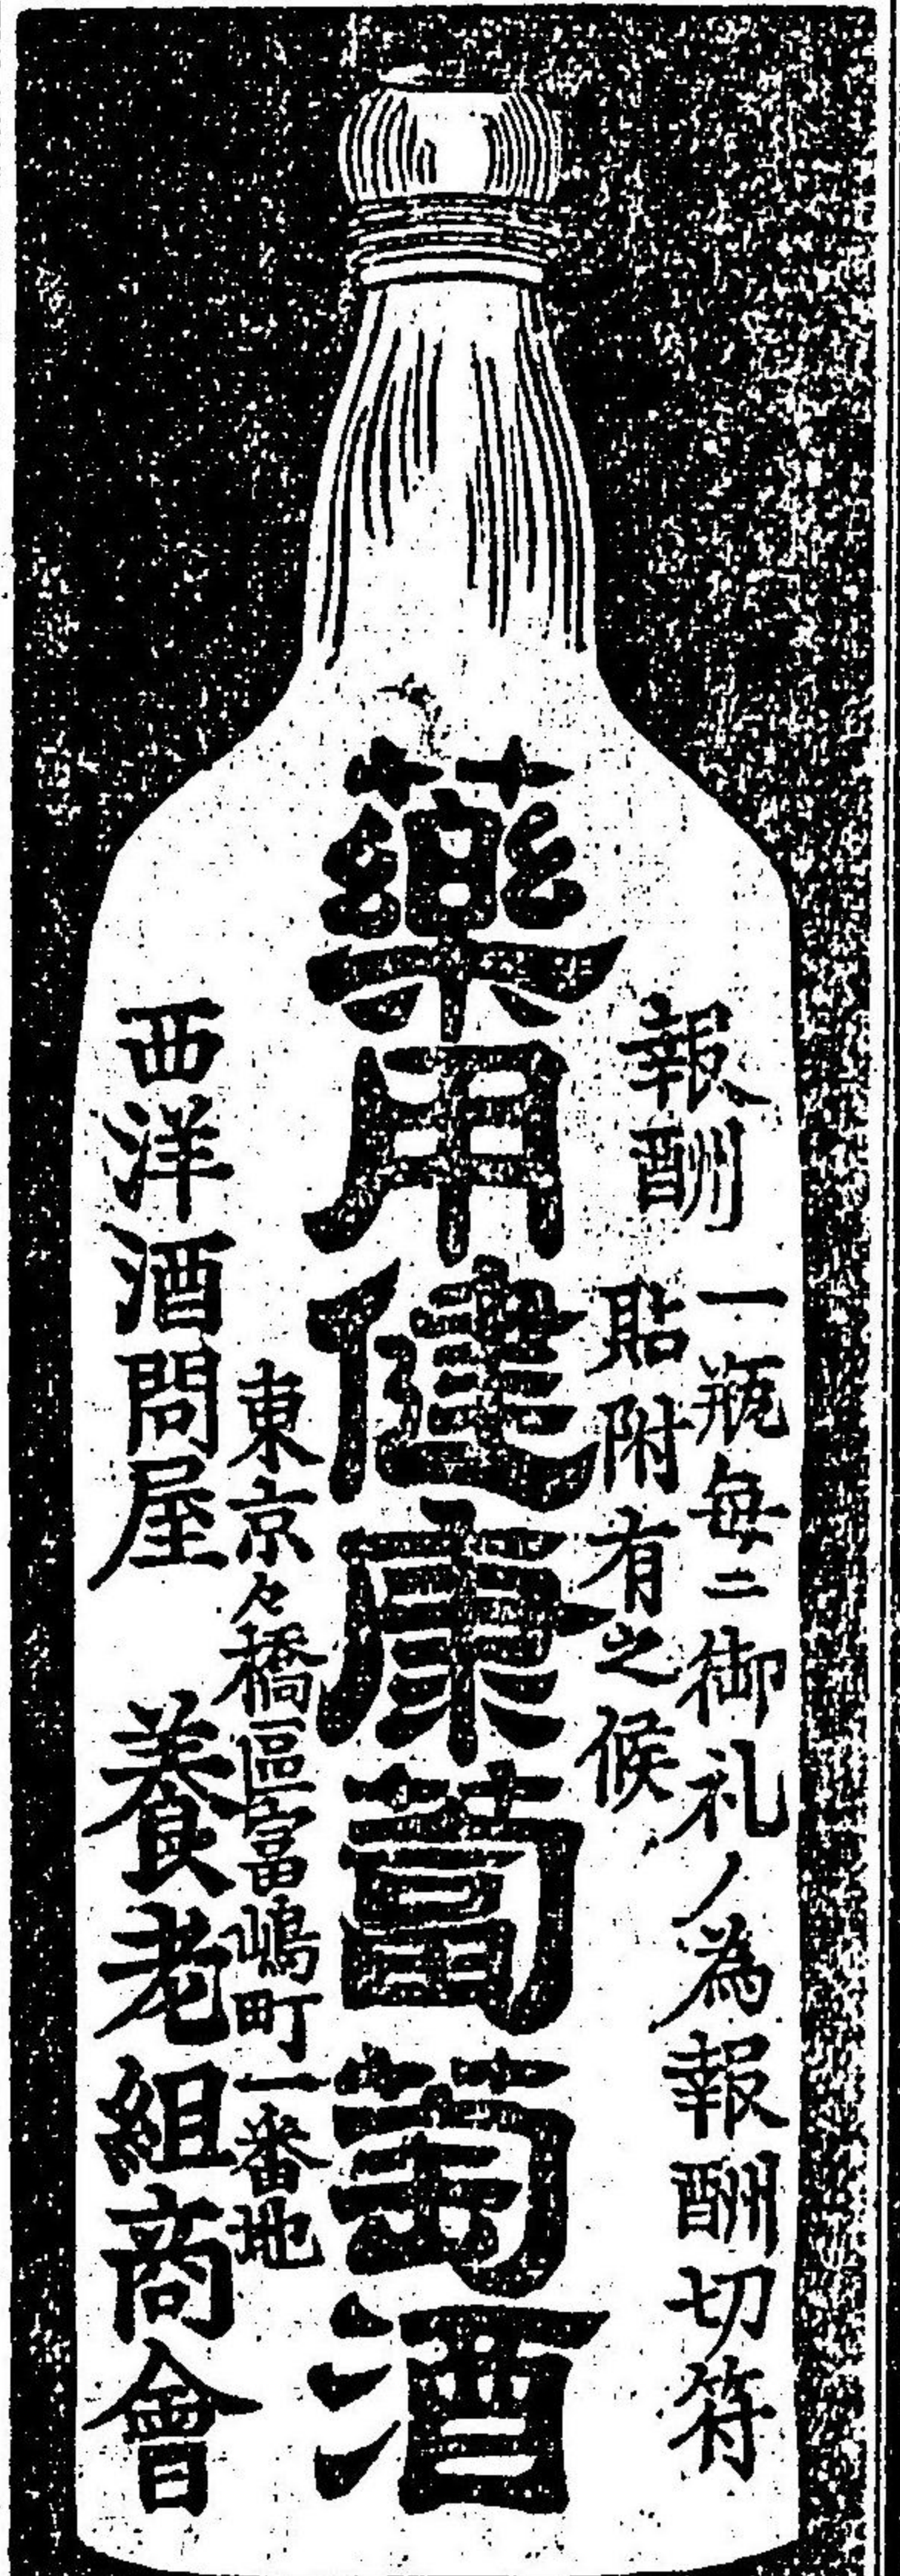 報酬
一瓶每ニ御礼ノ為報酬切符
貼附有之候
藥用健康葡萄酒
東京々橋區富嶋町一番地
西洋酒問屋 養老組商會